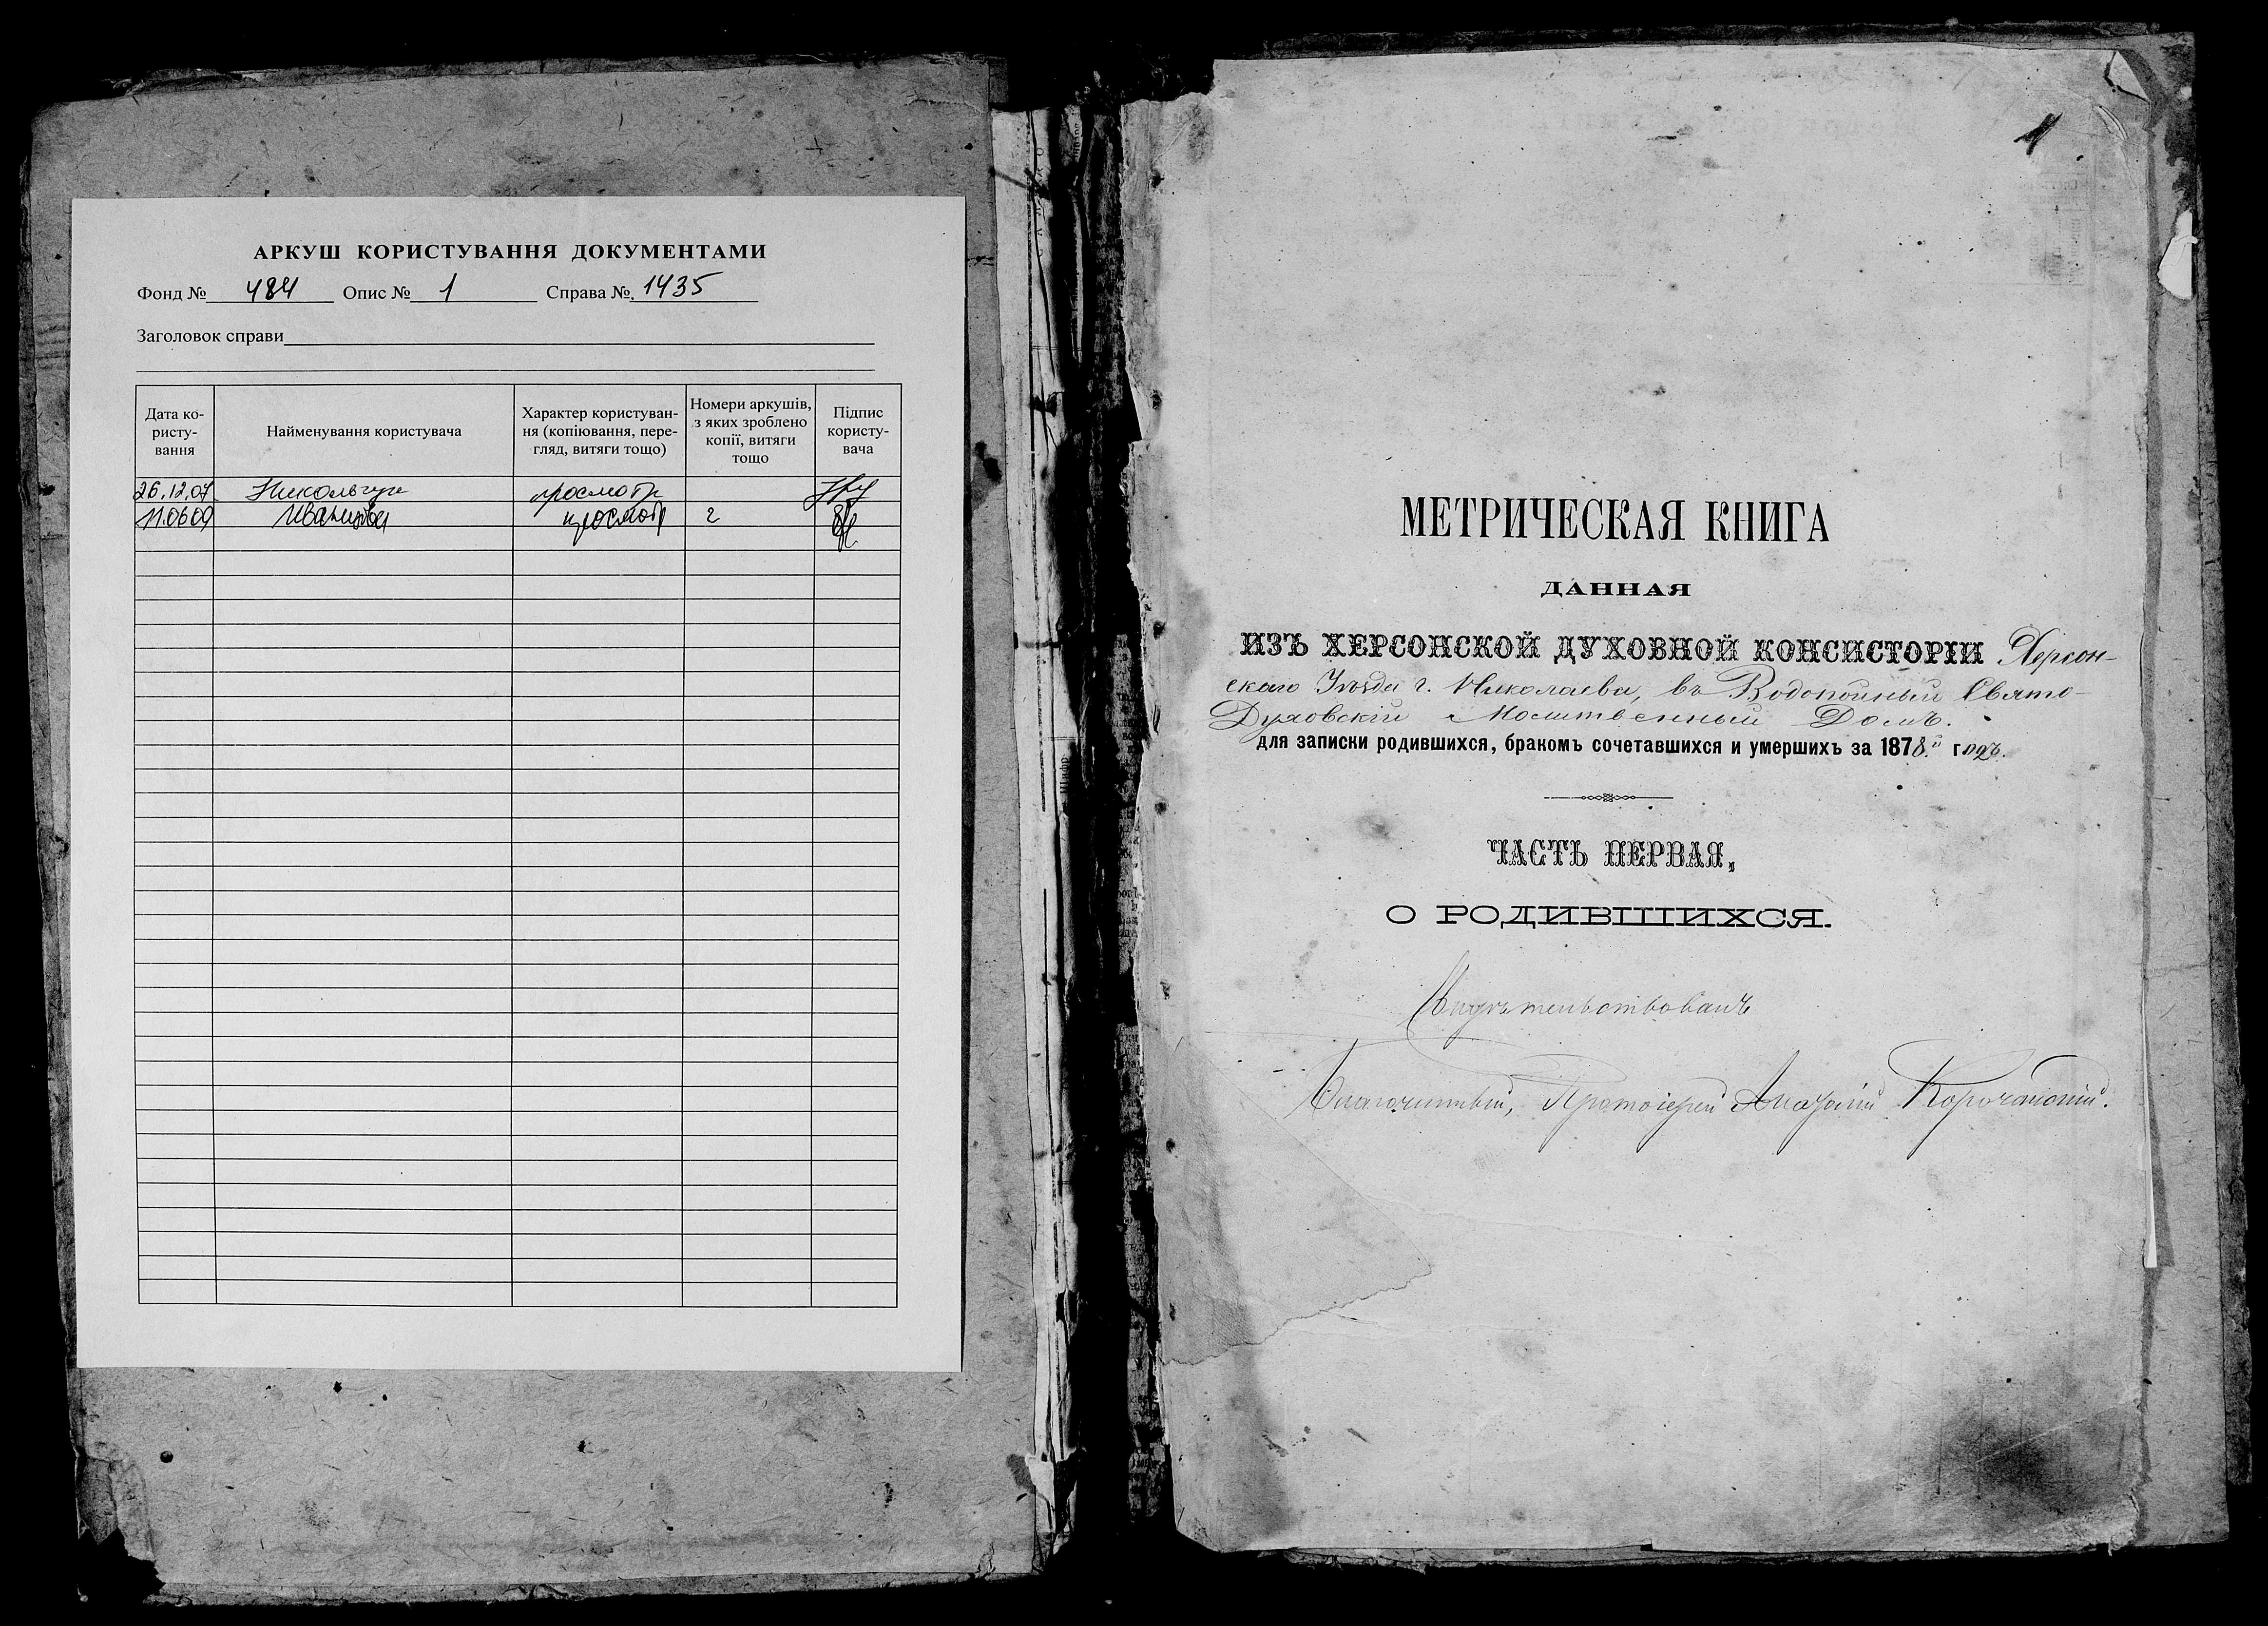 АРКУШ КОРИСТУВАННЯ ДОКУМЕНТАМИ
Фонд № 484 Опис № 1 Справа № 1435
Заголовок справи
Дата ко-
ристу-
вання
Найменування користувача
Характер користуван-
ня (копіювання, пере-
гляд, витяги тощо)
Номери аркушів,
з яких зроблено
копії, витяги
тощо
Підпис
користу-
вача
26.12.07 просмотр
11.06.09 просмотр 2
1
МЕТРИЧЕСКАЯ КНИГА
ДАННАЯ
ИЗЪ ХЕРСОНСКОЙ ДУХОВНОЙ КОНСИСТОРІИ Херсон-
скаго Уѣзда г. Николаева, въ Водопойный Свято-
Духовскій Молитвенный Домъ.
для записки родившихся, бракомъ сочетавшихся и умершихъ за 1878.й годъ.
ЧАСТЬ ПЕРВАЯ,
О РОДИВШИХСЯ.
Свидѣтельствовалъ
Благочинный, Протоіерей